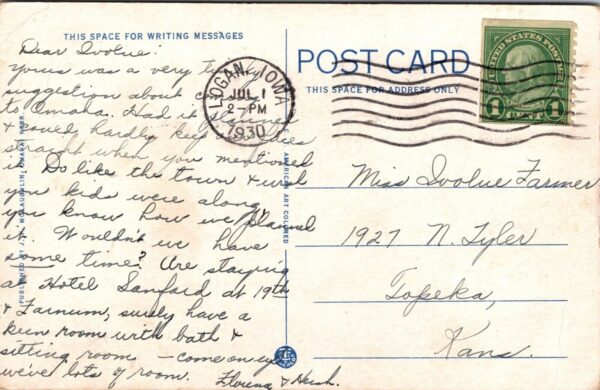 THIS SPACE FOR WRITING MESSAGES
Dear Ivolue:
yours was a very
suggestion about
to Omaha. Had it planned
& could hardly keep faces
straight when you mentioned
it. Do like the town & wish
you kids were along,
you know how we planned
it. Wouldn't we have
some time? Are staying
at Hotel Sanford at 19th
& Farnum, surely have a
keen room with bath &
sitting room – come on ey
we've lots of room.
Florena & Hersh.
PUBLISHED BY McLAUGHLIN, OMAHA, NEBR.
AMERICAN ART COLORED
POST CARD
THIS SPACE FOR ADDRESS ONLY
LOGAN, IOWA
JUL 1
2-PM
1930
UNITED STATES POSTAGE
1 CENT 1
Miss Ivolue Farmer
1927 N. Tyler
Topeka,
Kans.